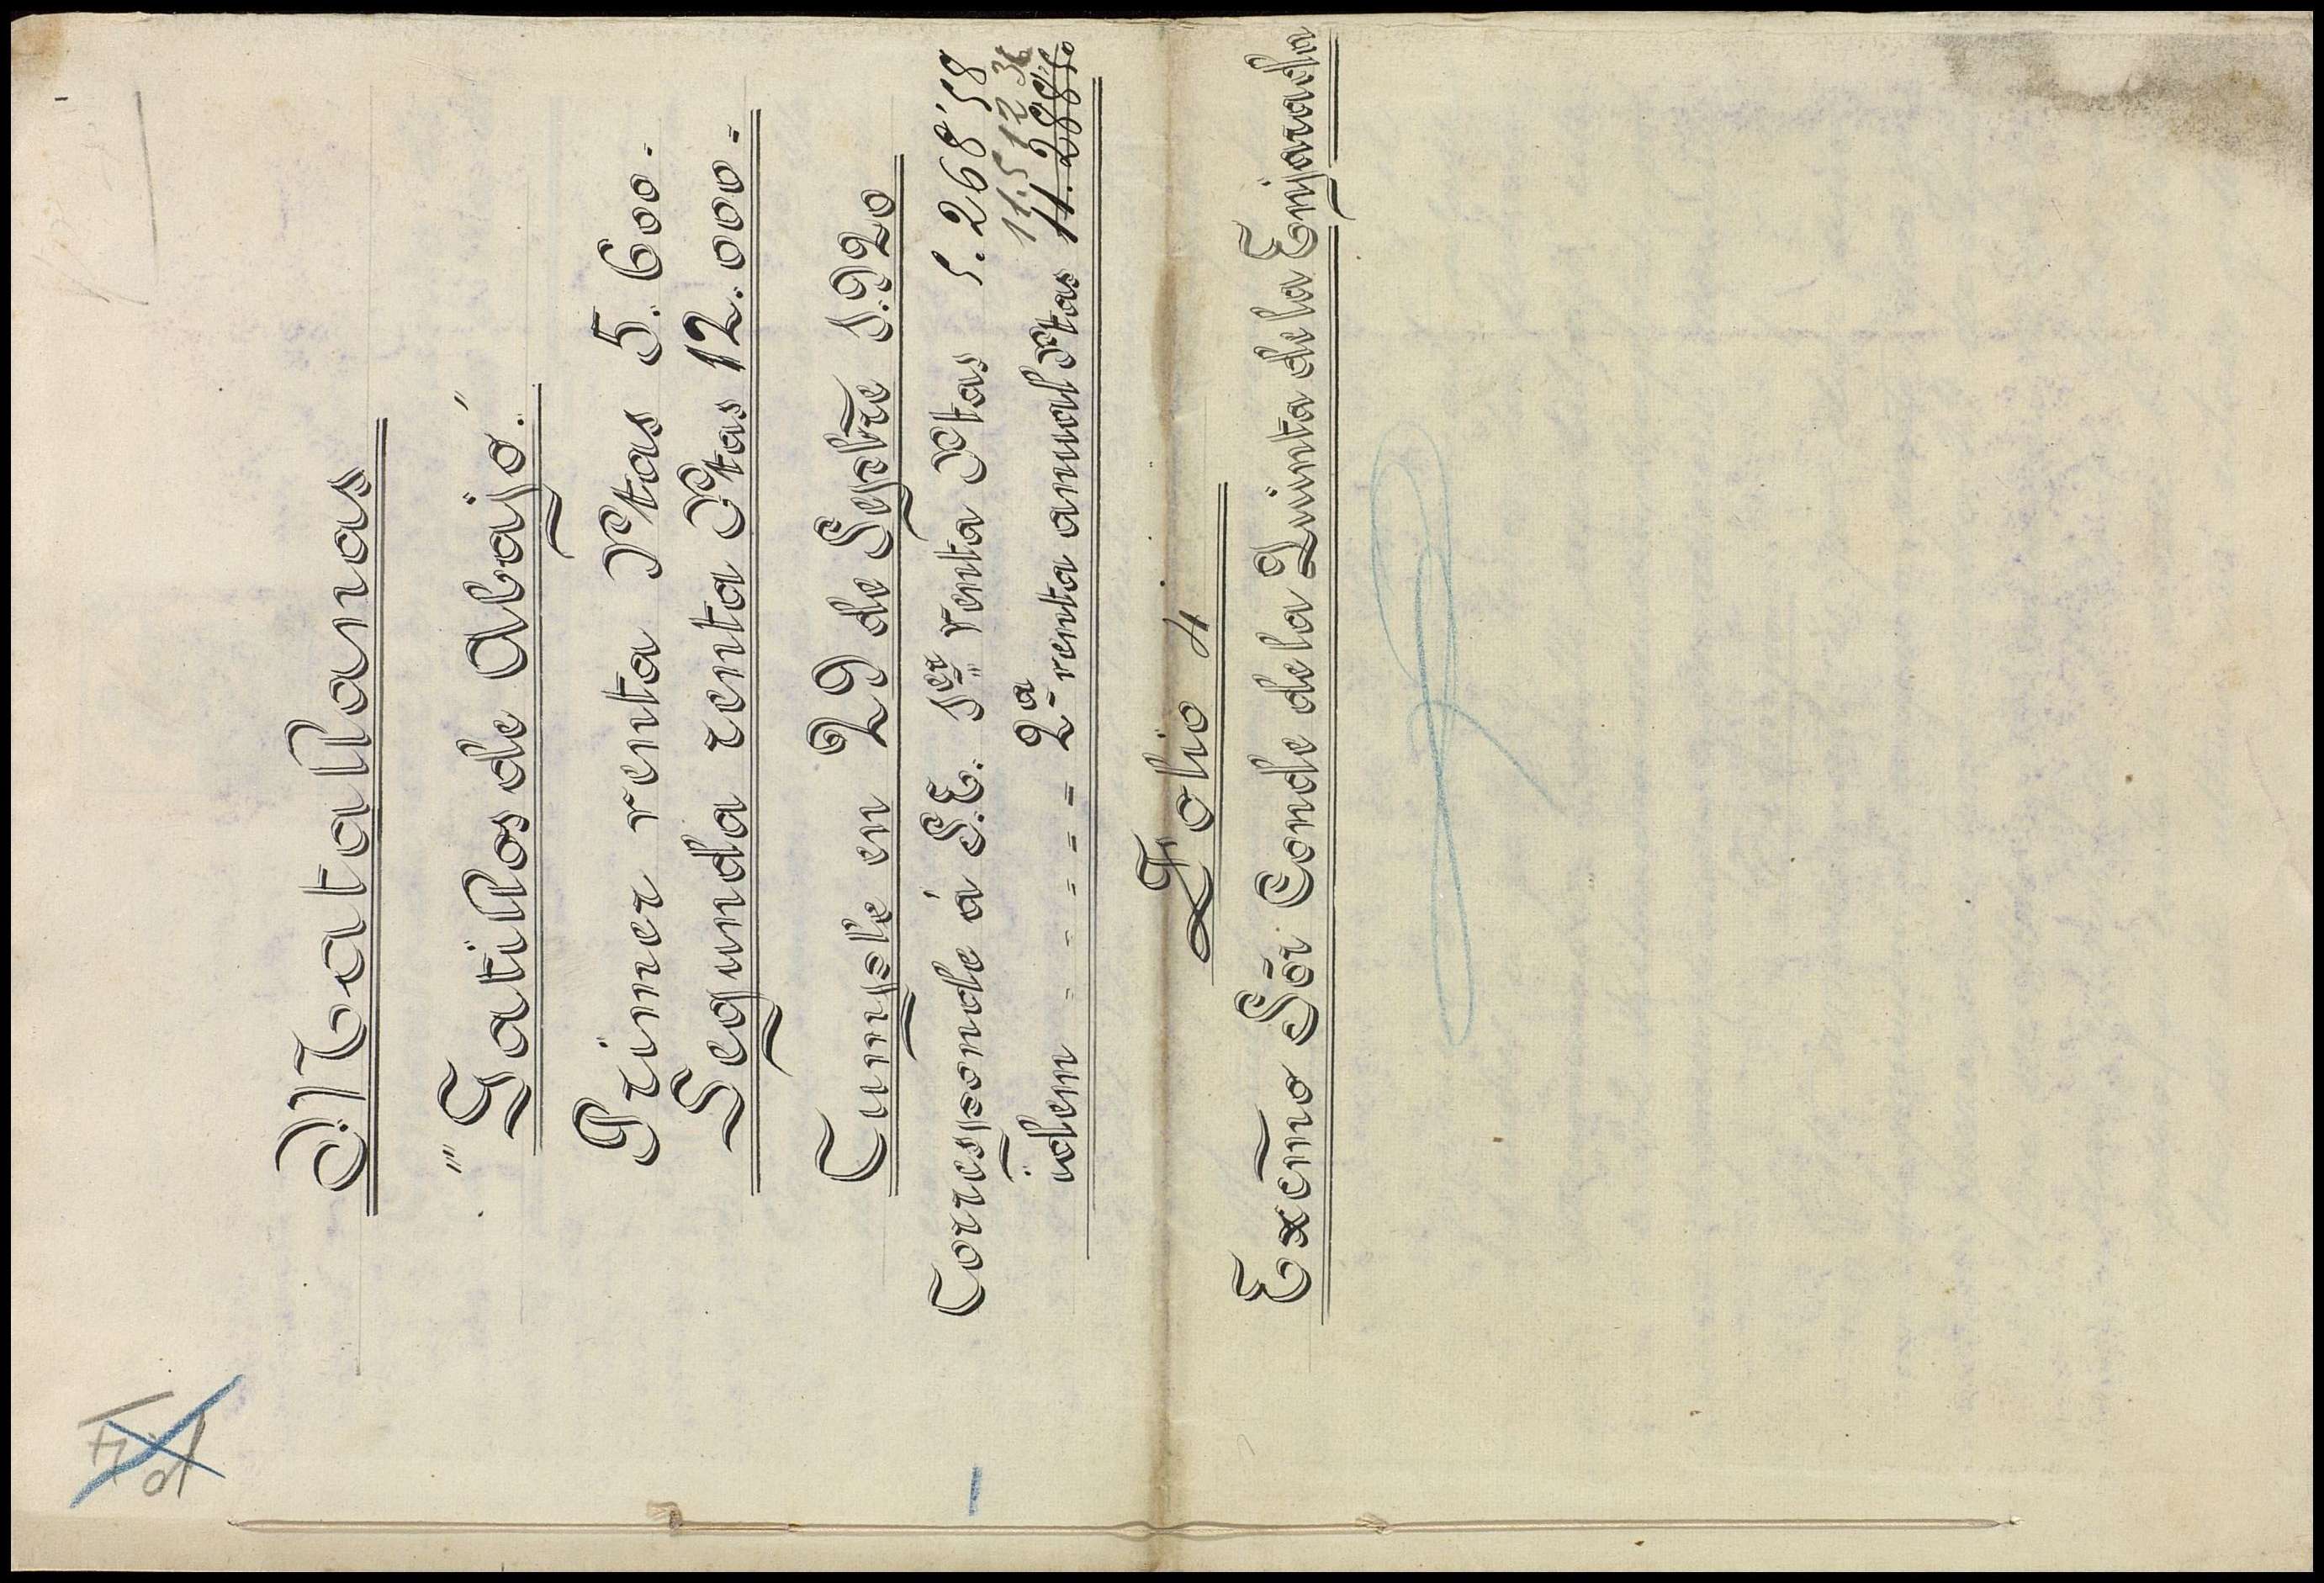 Matallanas
"Gatillos de Abajo."
Primer renta Ptas 5.600.=
Segunda renta Ptas 12.000.=
Cumple en 29 de Sepbre 1.920
Corresponde á S.E. 1er renta Ptas 5.268'58
11.512 36
idem = = = = = 2ª renta anual Ptas 11.288'50
Folio 4
Excmo Sor Conde de la Quinta de la Enjarada